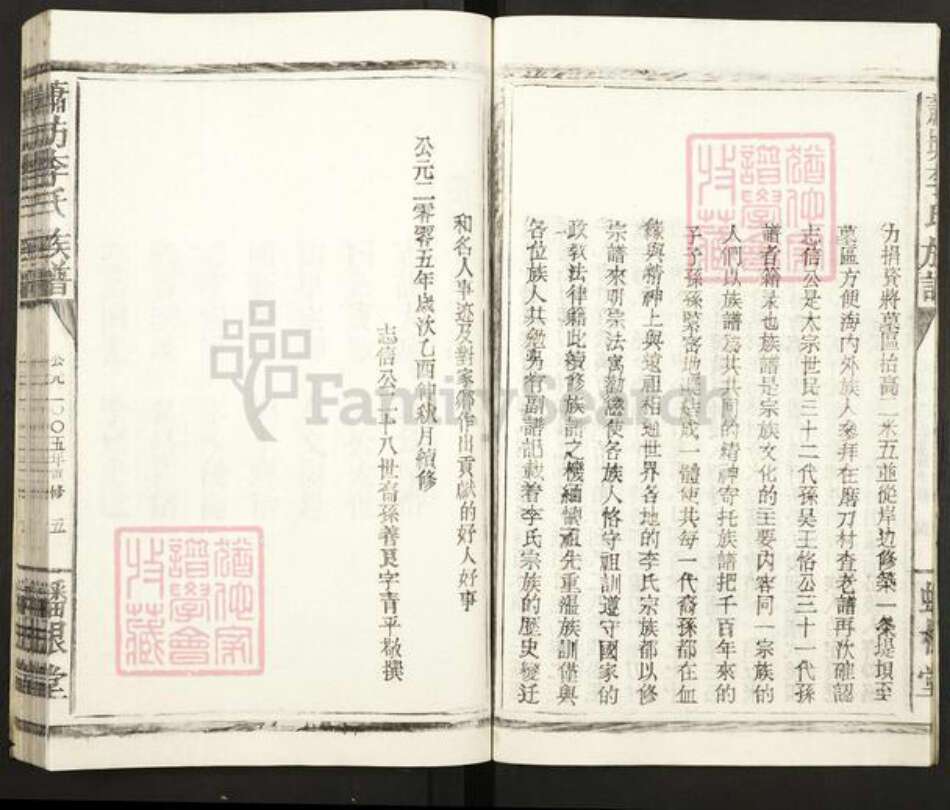 力捐資將墓區抬高一米五並從岸边修築一条堤垻至
墓區方便海内外族人祭拜在磨刀材査老譜再次確認
志信公是太宗世民三十二代孫吴王恪公三十一代孫
譜者籍彔也族譜是宗族文化的主要内容同一宗族的
人們以族譜爲其共同的精神寄托族譜把千百年來的
子子孫孫緊密地凝結成一體使其每一代裔孫都在血
緣與精神上與遠祖相通世界各地的李氏宗族都以修
宗譜來明宗法寓勸懲使各族人恪守祖訓遵守國家的
政敎法律藉此續修族譜之機緬懷祖先重溫族訓僅與
各位族人共勉另有副譜記載著李氏宗族的歷史變迁
和名人事迹及對家鄉作出貢獻的好人好事
公元二零零五年歲次乙酉仲秋月續修
志信公二十八世裔孫善良字青平敬撰
蕭坊李氏族譜
公元二〇〇五年重修
五
蟠根堂
猶他家譜學會收藏
猶他家譜學會收藏
FamilySearch